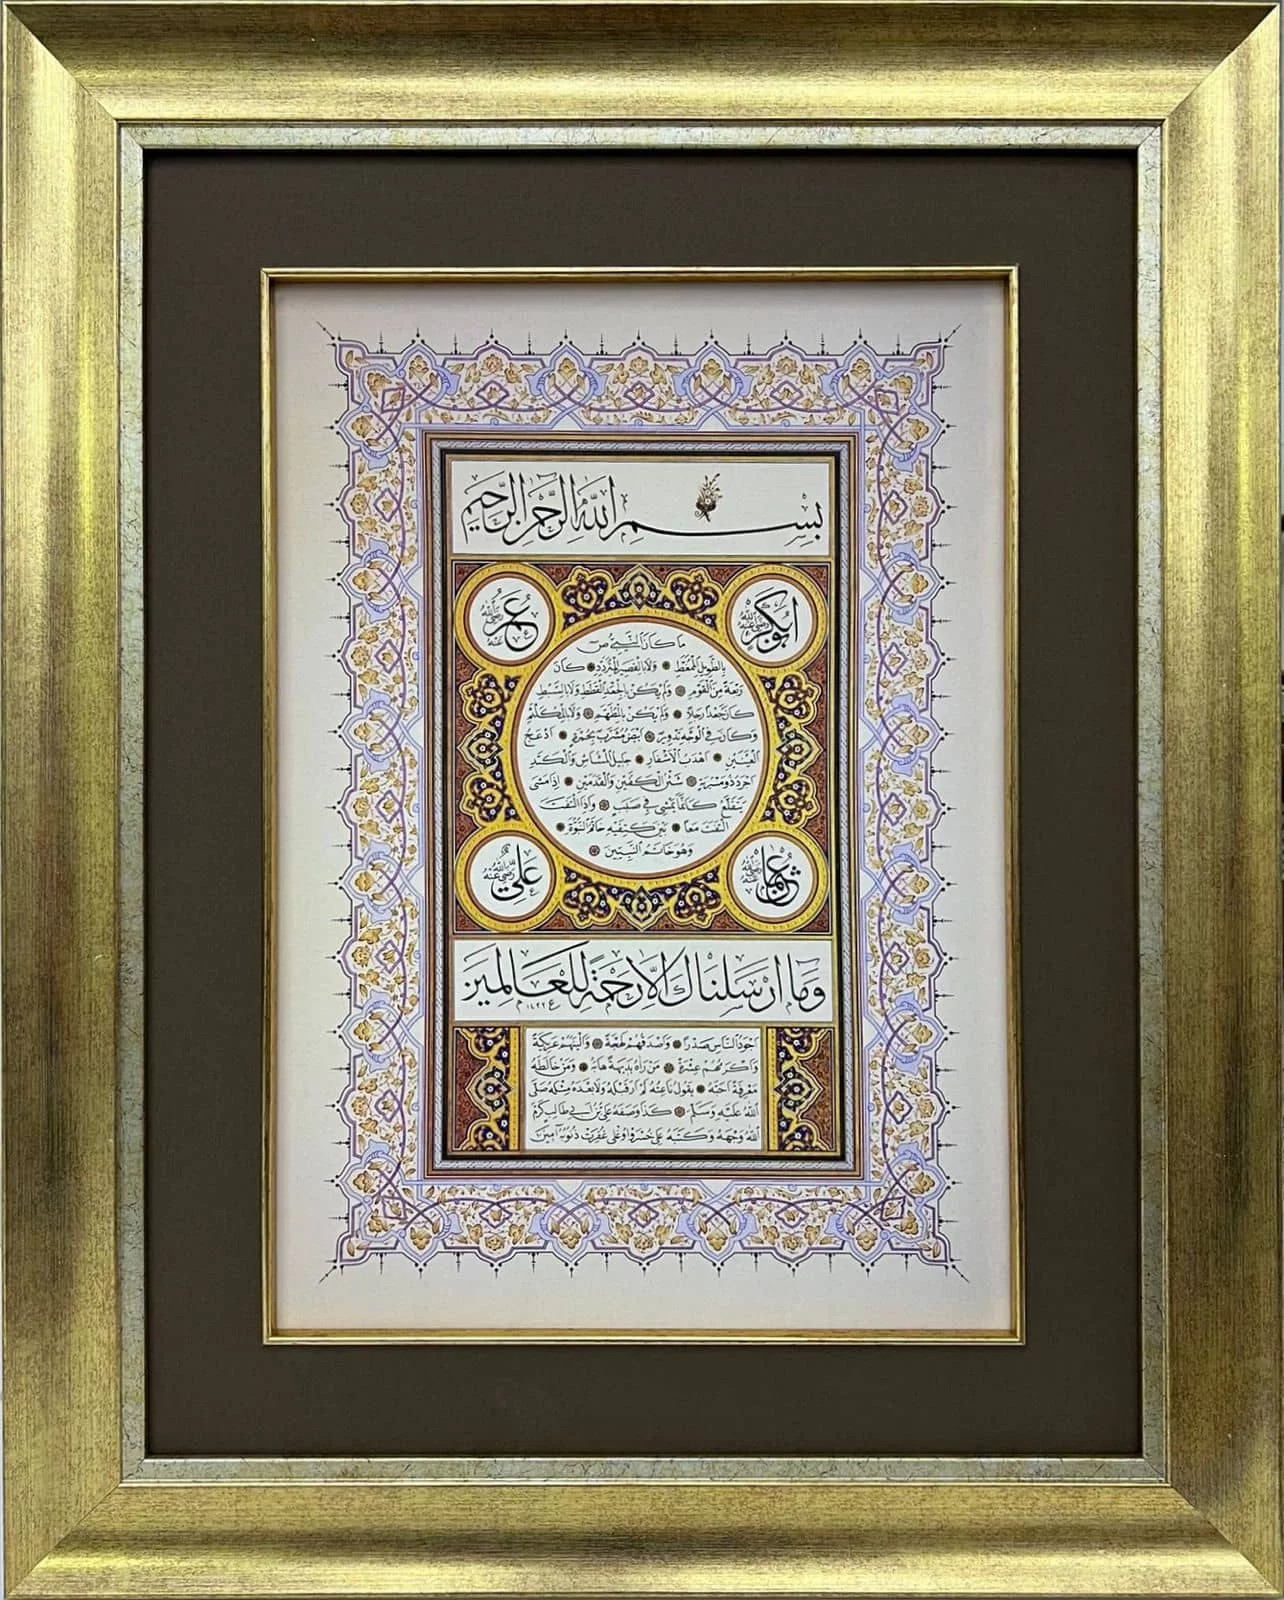 بِسْمِ اللهِ الرَّحْمٰنِ الرَّحِيمِ
ابوبكر رضي الله عنه
عمر رضي الله عنه
ما كان النبي ص
بالطويل الممغط ولا بالقصير المتردد كان
ربعة من القوم ولم يكن بالجعد القطط ولا بالسبط
كان جعدا رجلا ولم يكن بالمطهم ولا بالمكلثم
وكان في الوجه تدوير ابيض مشرب بحمرة ادعج
العينين اهدب الاشفار جليل المشاش والكتد
اجرد ذو مسربة شثن الكفين والقدمين اذا مشى
يتقلع كانما يمشي في صبب واذا التفت
التفت معا بين كتفيه خاتم النبوة
وهو خاتم النبيين
عثمان رضي الله عنه
علي رضي الله عنه
وما ارسلناك الا رحمة للعالمين
اجود الناس صدرا واصدقهم لهجة والينهم عريكة
واكرمهم عشرة من راه بديهة هابه ومن خالطه
معرفة احبه يقول ناعته لم ار قبله ولا بعده مثله صلى
الله عليه وسلم كذا وصفه علي بن ابي طالب كرم
الله وجهه وكتبه علي خسرو اوغلى غفرت ذنوبه امين